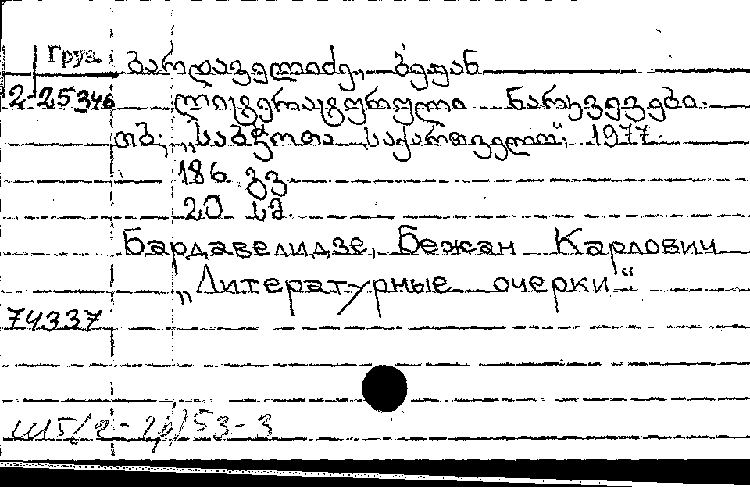 Груз.
ბარდაველიძე, ბეჟან
2-25346 ლიტერატურული ნარკვევები.
თბ; „საბჭოთა საქართველო“, 1977.
186 გვ
20 სმ
Бардавелидзе, Бежан Карлович
„Литературные очерки“
74337
53-3